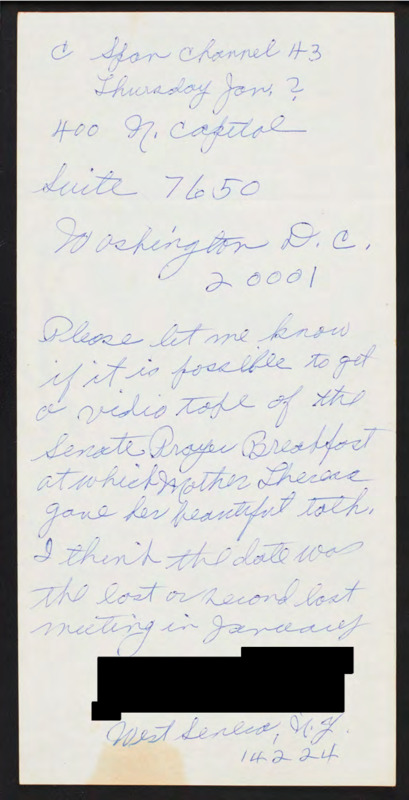 C Span Channel 43
Thursday Jan. ?
400 N. Capitol
Suite 7650
Washington D.C.
20001
Please let me know
if it is possible to get
a vidio tape of the
Senate Prayer Breakfast
at which Mother Theresa
gave her beautiful talk.
I think the date was
the last or second last
meeting in January
West Seneca, N.Y.
14224